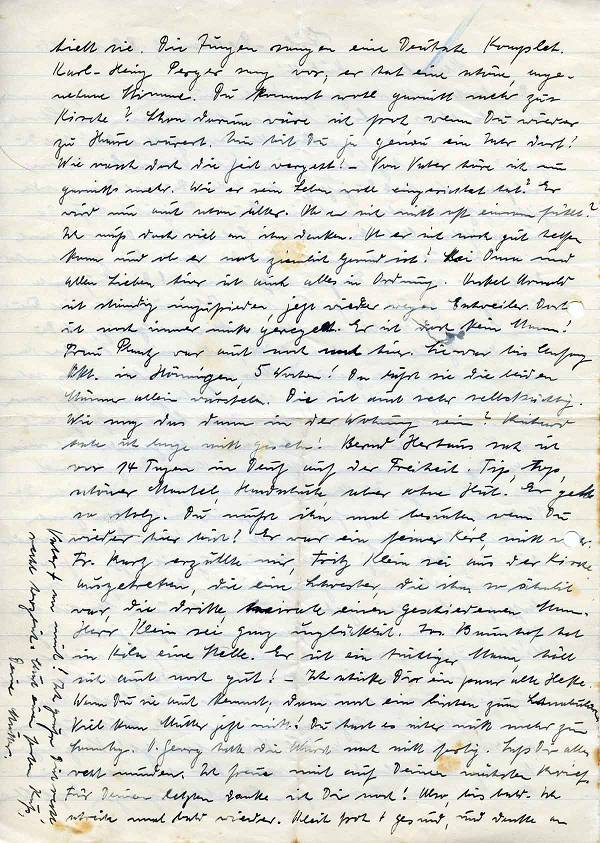 hielt sie. Die Jungen sangen eine Deutsche Komplet.
Karl-Heinz Perger sang vor; er hat eine schöne, ange-
nehme Stimme. Du kommst wohl garnicht mehr zur
Kirche? Schon darum wäre ich froh, wenn Du wieder
zu Hause wärest. Nun bist Du ja genau ein Jahr dort!
Wie rasch doch die Zeit vergeht! – Von Vater höre ich nun
garnichts mehr. Wie er sein Leben wohl eingerichtet hat? Er
wird nun auch schon älter. Ob er sich nicht oft einsam fühlt?
Ich muß doch viel an ihn denken. Ob er sich noch gut helfen
kann und ob er noch ziemlich gesund ist! Bei Oma und
allen Lieben hier ist auch alles in Ordnung. Onkel Arnold
ist ständig unzufrieden, jetzt wieder wegen Eschweiler. Dort
ist noch immer nichts geregelt. Er ist doch kein Mann!
Frau war auch noch hier. Sie war bis Anfang
Okt. in Hönningen, 5 Wochen! Da läßt sie die beiden
Männer allein. Die ist auch sehr selbstsüchtig.
Wie mag das dann in der Wohnung sein? Richard
habe ich lange nicht gesehen! Bernd sah ich
vor 14 Tagen in Deutz auf der Freiheit. Tip, top,
schöner Mantel, Handschuhe, aber ohne Hut. Er geht
so stolz. Du mußt ihn mal besuchen, wenn Du
wieder hier bist? Er war ein feiner Kerl, nicht wahr.
Fr. Kurtz erzählte mir, Fritz Klein sei aus der Kirche
ausgetreten, die eine Schwester, die ihm so ähnlich
war, die dritte heirate einen geschiedenen Mann.
Herr Klein sei ganz unglücklich. Jos. hat
in Köln eine Stelle. Er ist ein tüchtiger Mann, hält
sich auch noch gut! – Ich schicke Dir ein paar alte Hefte.
Wenn Du sie auch kennst, dann noch ein bischen zum
Viel kann Mutter jetzt nicht! Du hast es sicher nicht mehr zu
O. Georg hat die Wurst noch nicht fertig. Laß Dir alles
recht munden. Ich freue mich auf Deinen nächsten Brief.
Für Deinen letzten danke ich Dir noch! Also, bis bald. Ich
schreibe mal bald wieder. Bleib froh + gesund, und denke an
Vater + an mich! Ich grüße Dich recht
recht herzlich. Und einen Kuß,
Deine Mutter.